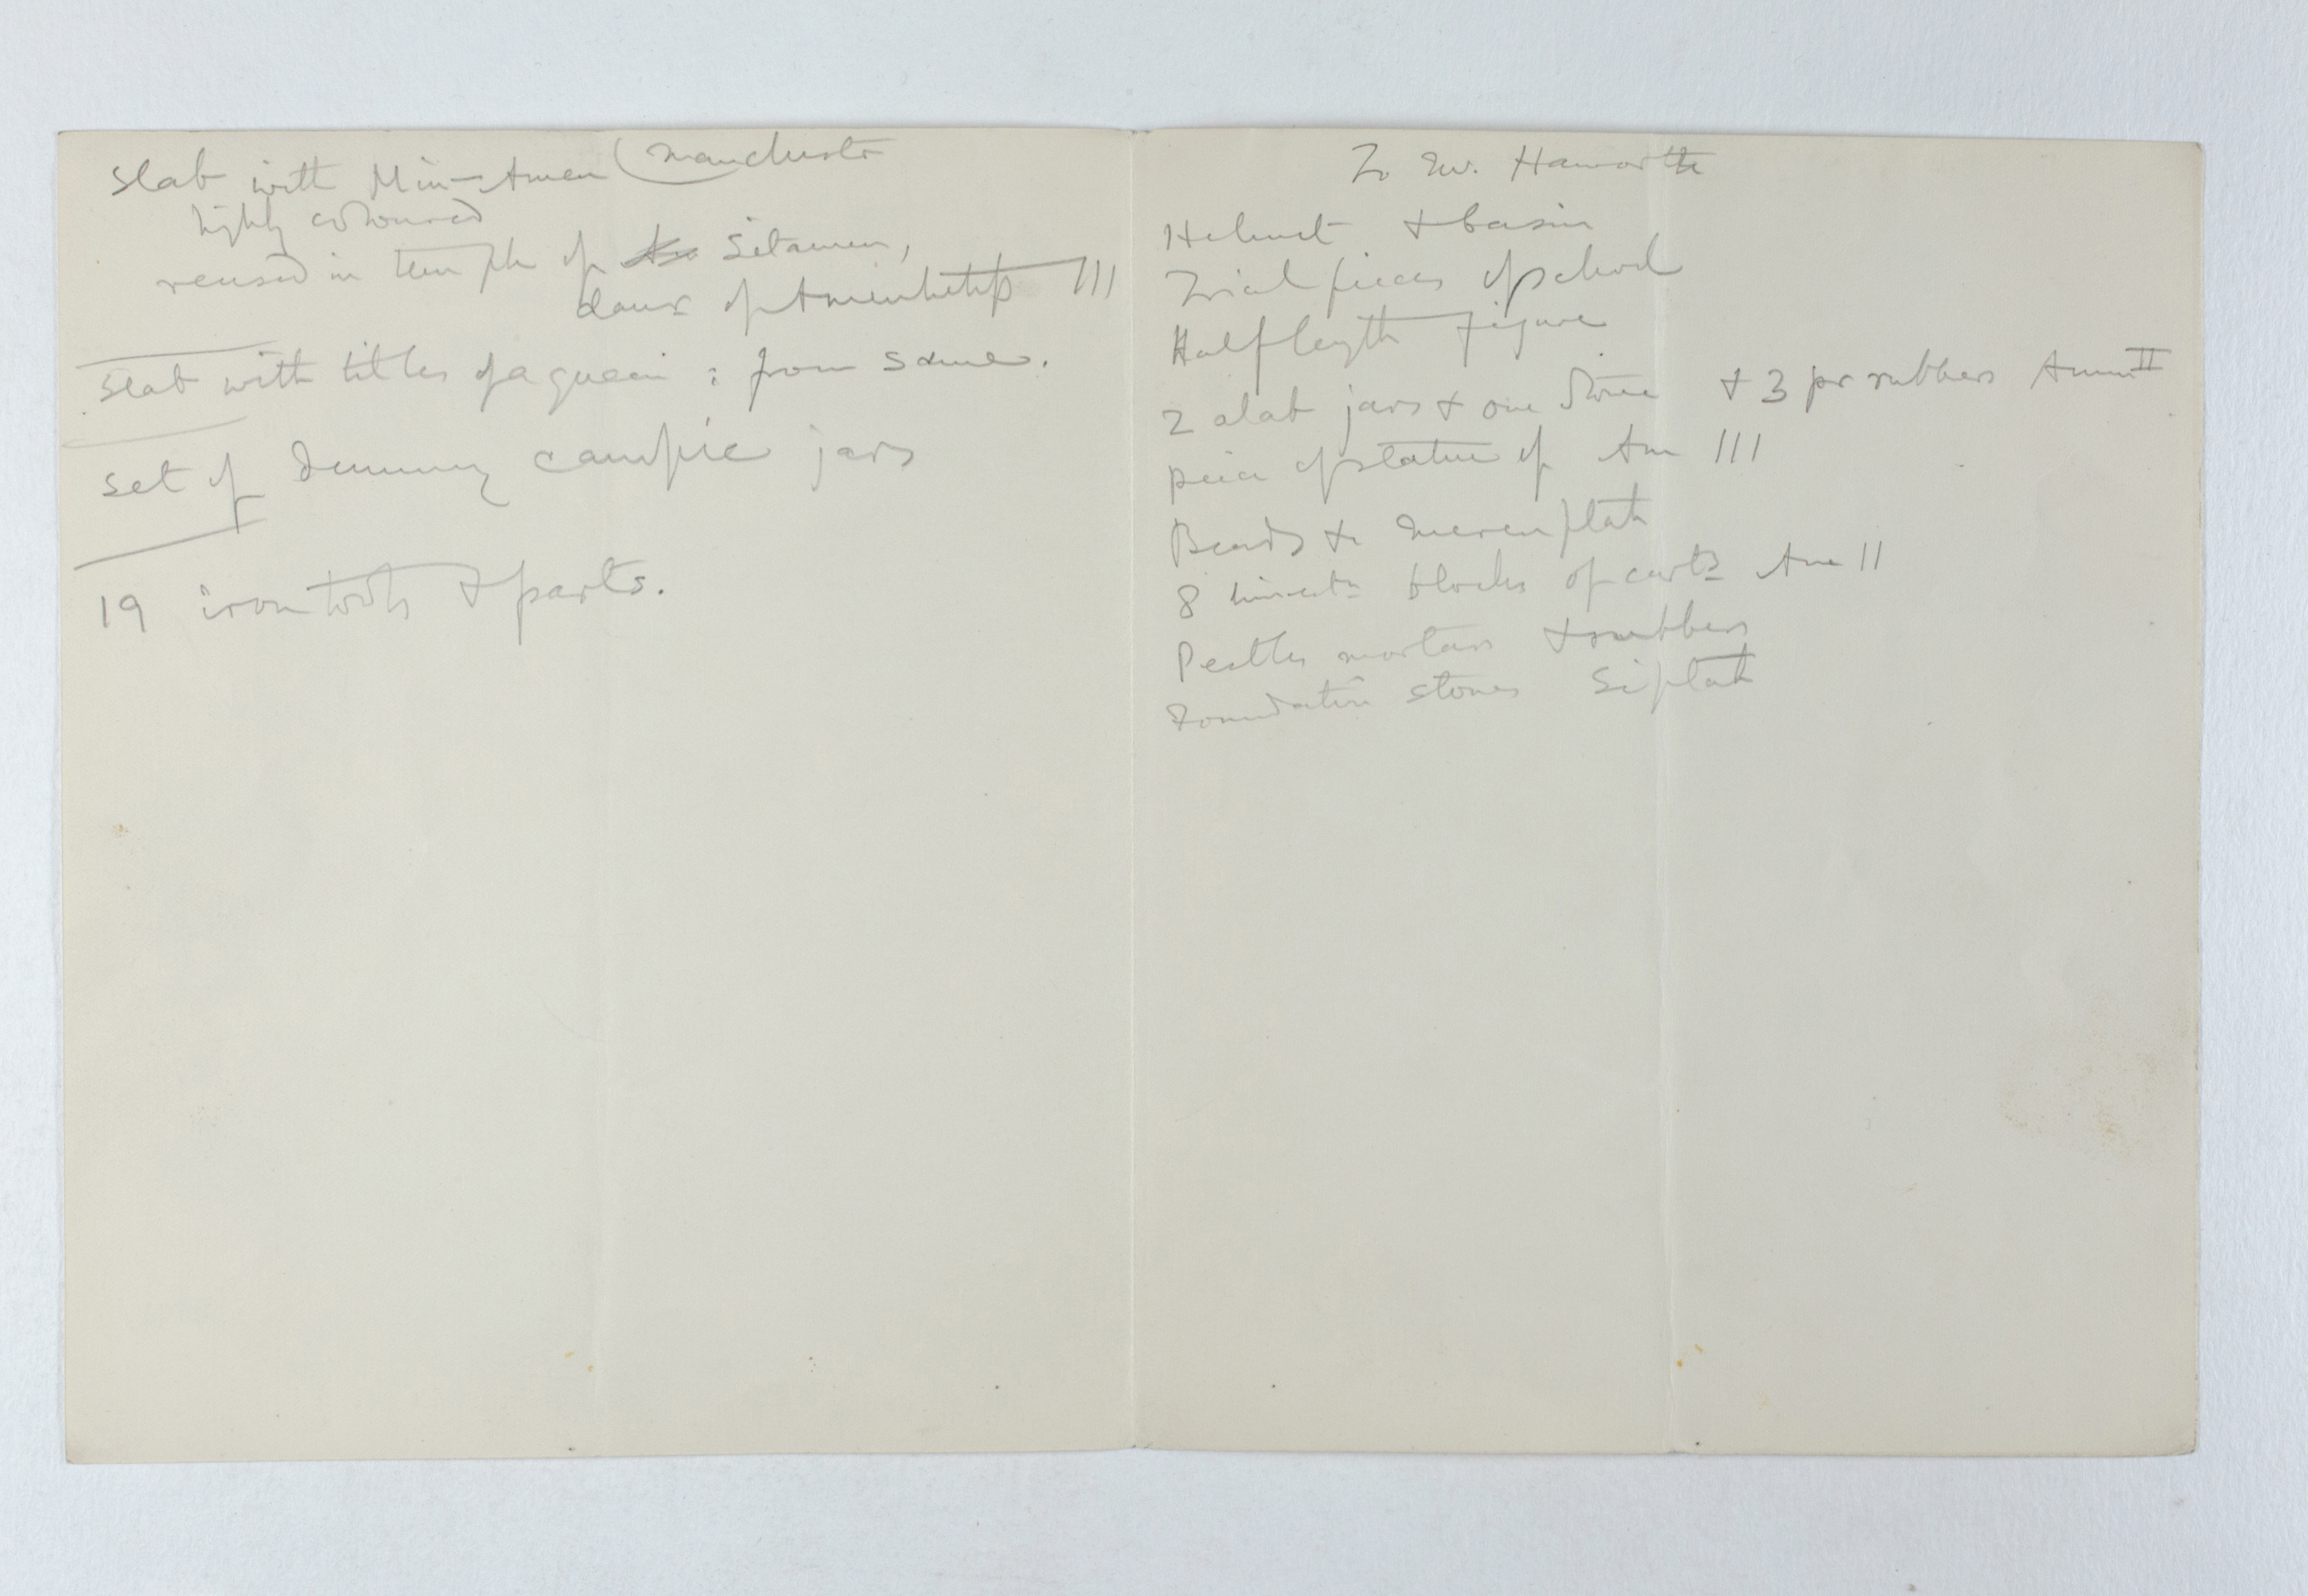 Slab with Min-Amen (Manchester
highly coloured
reused in temple of Sitamen,
daur of Amenhetep III
Slab with titles of a queen : from same.
Set of dummy canopic jars
19 iron tools & parts.
To Haworth
Helmet & basin
Trial pieces of school
Half length figure
2 alab jars & one stone & 3 pr rubbers Amen II
piece of statue of Am III
Beads &c Merenptah
8 blocks of Am II
Pestles mortars & rubbers
Foundation stones Siptah